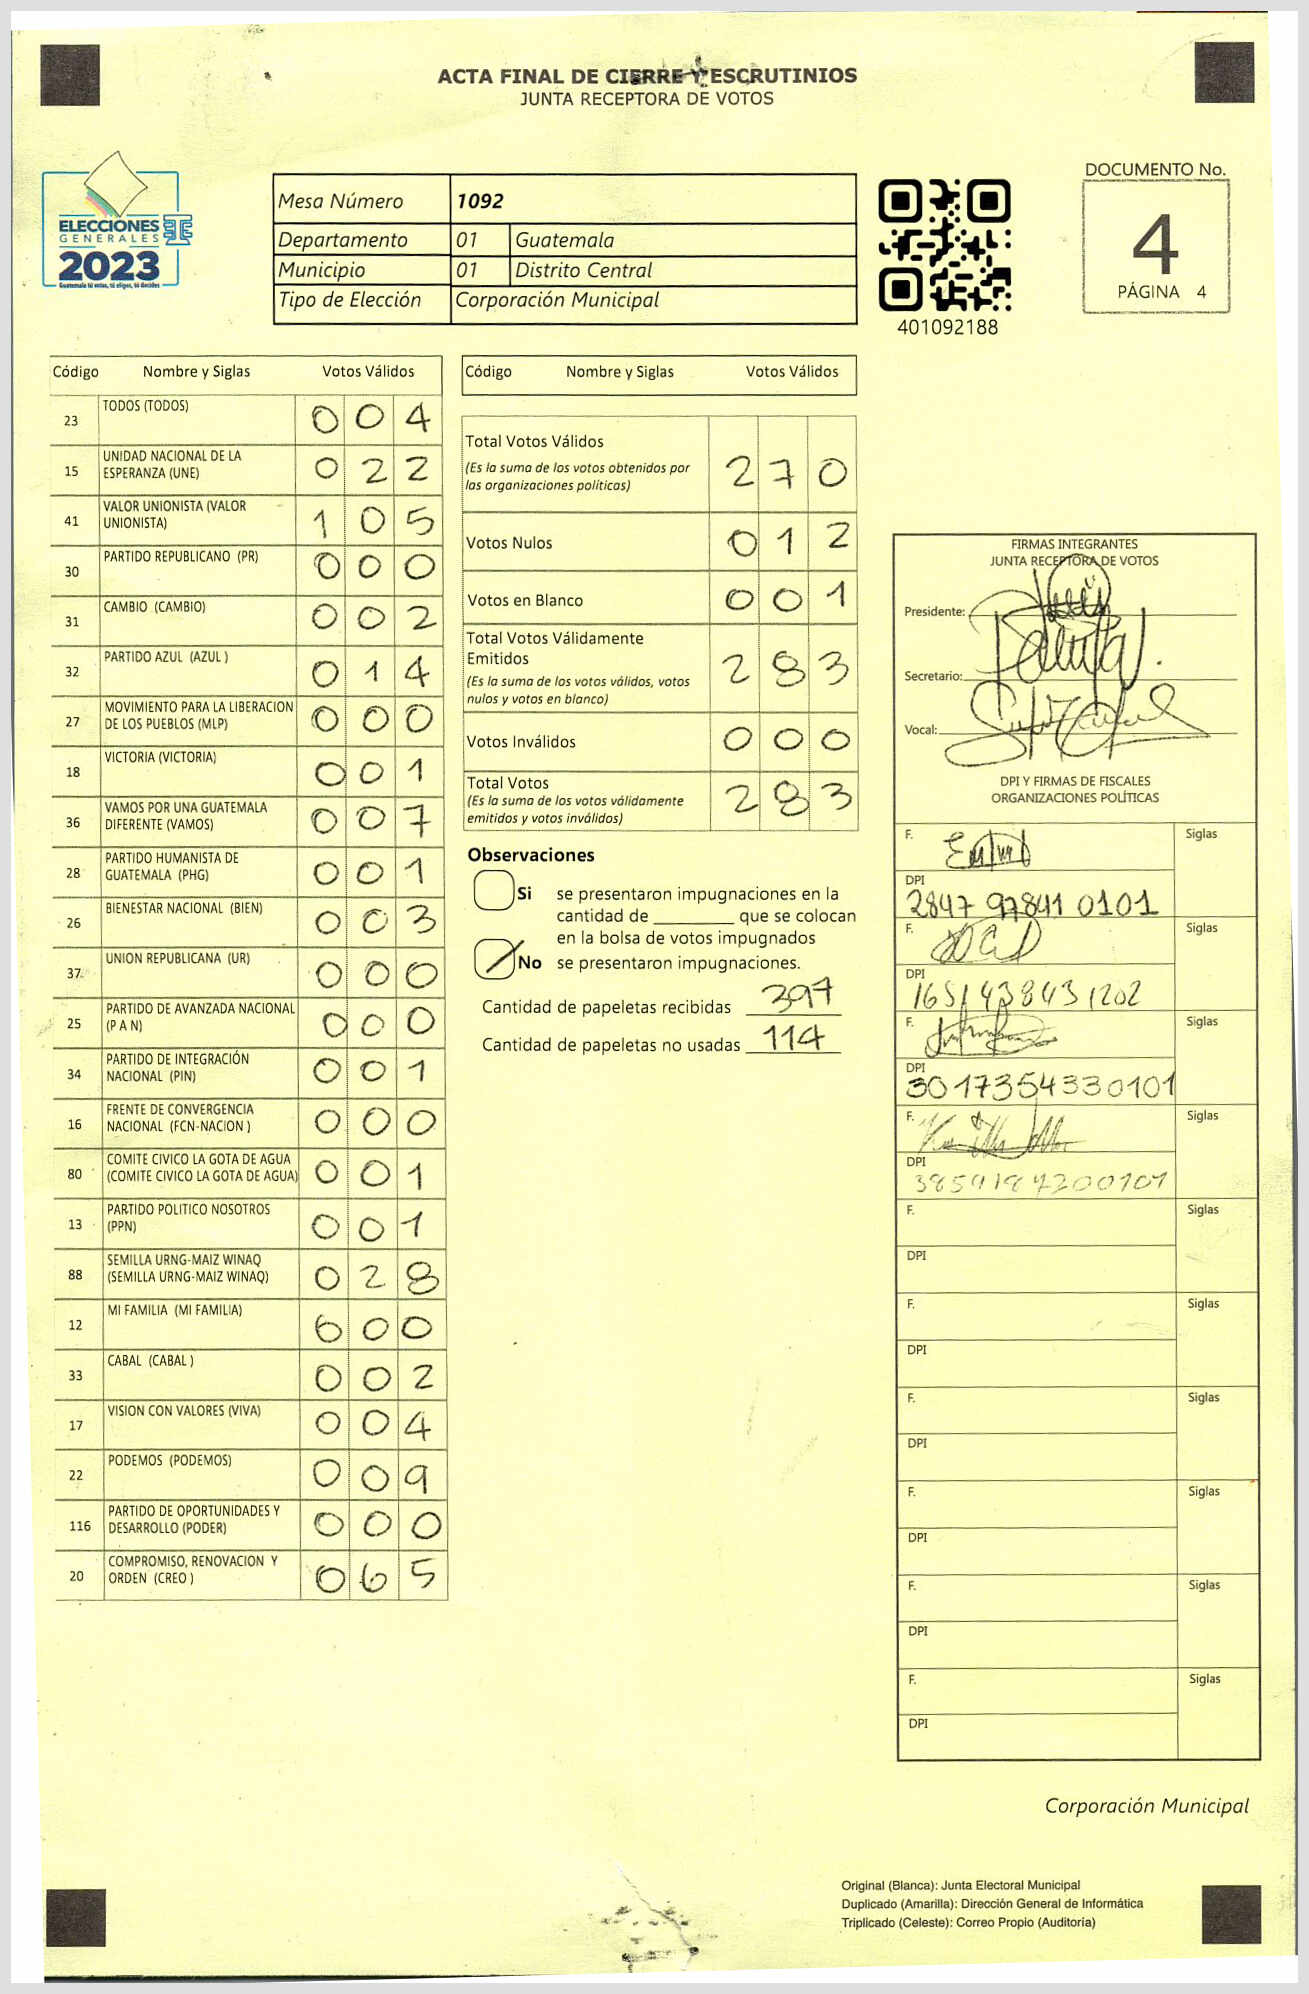 ACTA FINAL DE CIERRE Y ESCRUTINIOS
JUNTA RECEPTORA DE VOTOS
ELECCIONES
GENERALES
2023
Guatemala tú votas, tú eliges, tú decides
Mesa Número 1092
Departamento 01 Guatemala
Municipio 01 Distrito Central
Tipo de Elección Corporación Municipal
401092188
DOCUMENTO No.
4
PÁGINA 4
Código Nombre y Siglas Votos Válidos
23 TODOS (TODOS) 0 0 4
15 UNIDAD NACIONAL DE LA
ESPERANZA (UNE) 0 2 2
41 VALOR UNIONISTA (VALOR
UNIONISTA) 1 0 5
30 PARTIDO REPUBLICANO (PR) 0 0 0
31 CAMBIO (CAMBIO) 0 0 2
32 PARTIDO AZUL (AZUL ) 0 1 4
27 MOVIMIENTO PARA LA LIBERACION
DE LOS PUEBLOS (MLP) 0 0 0
18 VICTORIA (VICTORIA) 0 0 1
36 VAMOS POR UNA GUATEMALA
DIFERENTE (VAMOS) 0 0 7
28 PARTIDO HUMANISTA DE
GUATEMALA (PHG) 0 0 1
26 BIENESTAR NACIONAL (BIEN) 0 0 3
37 UNION REPUBLICANA (UR) 0 0 0
25 PARTIDO DE AVANZADA NACIONAL
(P A N) 0 0 0
34 PARTIDO DE INTEGRACIÓN
NACIONAL (PIN) 0 0 1
16 FRENTE DE CONVERGENCIA
NACIONAL (FCN-NACION ) 0 0 0
80 COMITE CIVICO LA GOTA DE AGUA
(COMITE CIVICO LA GOTA DE AGUA) 0 0 1
13 PARTIDO POLITICO NOSOTROS
(PPN) 0 0 1
88 SEMILLA URNG-MAIZ WINAQ
(SEMILLA URNG-MAIZ WINAQ) 0 2 8
12 MI FAMILIA (MI FAMILIA) 0 0 0
33 CABAL (CABAL ) 0 0 2
17 VISION CON VALORES (VIVA) 0 0 4
22 PODEMOS (PODEMOS) 0 0 9
116 PARTIDO DE OPORTUNIDADES Y
DESARROLLO (PODER) 0 0 0
20 COMPROMISO, RENOVACION Y
ORDEN (CREO ) 0 6 5
Código Nombre y Siglas Votos Válidos
Total Votos Válidos
(Es la suma de los votos obtenidos por
las organizaciones políticas) 2 7 0
Votos Nulos 0 1 2
Votos en Blanco 0 0 1
Total Votos Válidamente
Emitidos
(Es la suma de los votos válidos, votos
nulos y votos en blanco) 2 8 3
Votos Inválidos 0 0 0
Total Votos
(Es la suma de los votos válidamente
emitidos y votos inválidos) 2 8 3
Observaciones
Si se presentaron impugnaciones en la
cantidad de que se colocan
en la bolsa de votos impugnados
No se presentaron impugnaciones.
Cantidad de papeletas recibidas 397
Cantidad de papeletas no usadas 114
FIRMAS INTEGRANTES
JUNTA RECEPTORA DE VOTOS
Presidente:
Secretario:
Vocal:
DPI Y FIRMAS DE FISCALES
ORGANIZACIONES POLÍTICAS
F. Siglas
DPI
2847 97841 0101
F. Siglas
DPI
1651438431202
F. Siglas
DPI
3017354330101
F. Siglas
DPI
F. Siglas
DPI
F. Siglas
DPI
F. Siglas
DPI
F. Siglas
DPI
F. Siglas
DPI
F. Siglas
DPI
Corporación Municipal
Original (Blanca): Junta Electoral Municipal
Duplicado (Amarilla): Dirección General de Informática
Triplicado (Celeste): Correo Propio (Auditoría)